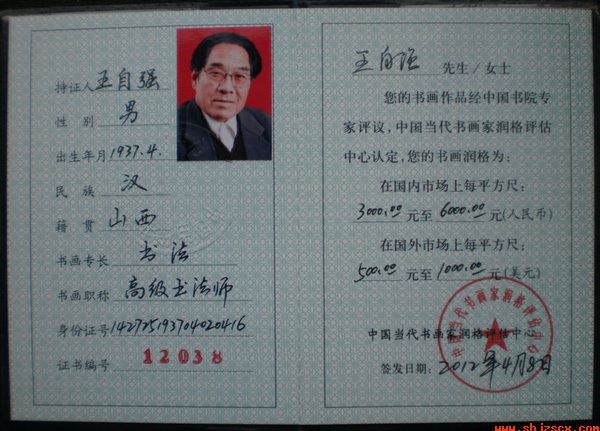 持证人 王自强
性 别 男
出生年月 1937.4.
民 族 汉
籍 贯 山西
书画专长 书法
书画职称 高级书法师
身份证号 142725193704020416
证书编号 12038
王自强 先生/女士
您的书画作品经中国书院专
家评议，中国当代书画家润格评估
中心认定，您的书画润格为：
在国内市场上每平方尺：
3000.00 元至 6000.00 元(人民币)
在国外市场上每平方尺：
500.00 元至 1000.00 元(美元)
中国当代书画家润格评估中心
中国当代书画家润格评估中心
签发日期：2012年4月8日
www.shjzscx.com